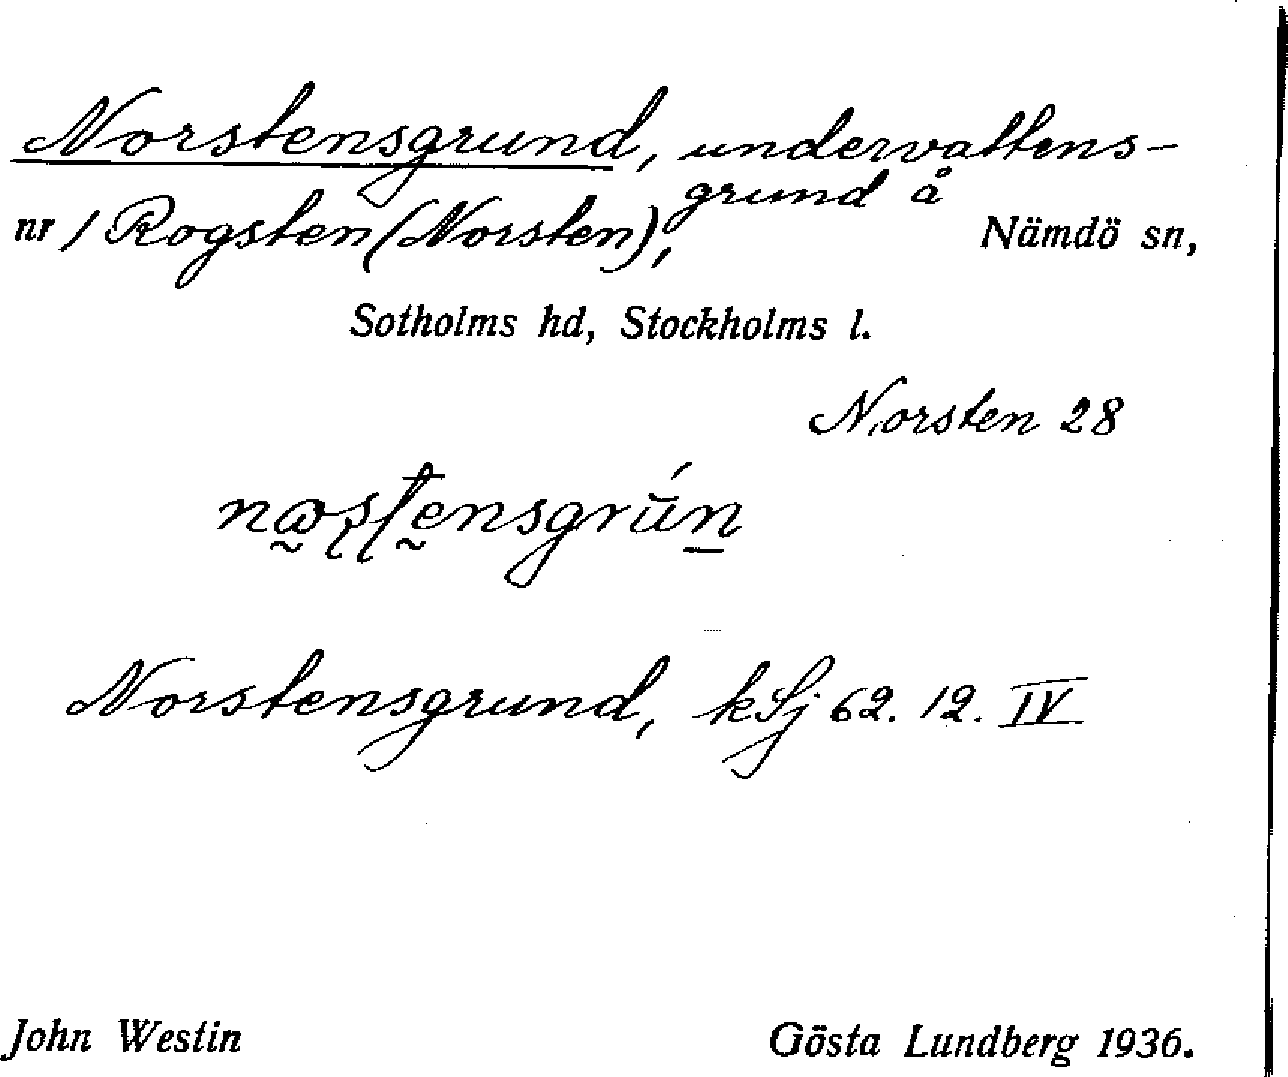 Norstensgrund, undervattens-
grund å
nr 1 Rogsten (Norsten), Nämdö sn,
Sotholms hd, Stockholms l.
Norsten 28
Norstensgrund, kSj 62. 12. IV
John Westin Gösta Lundberg 1936.